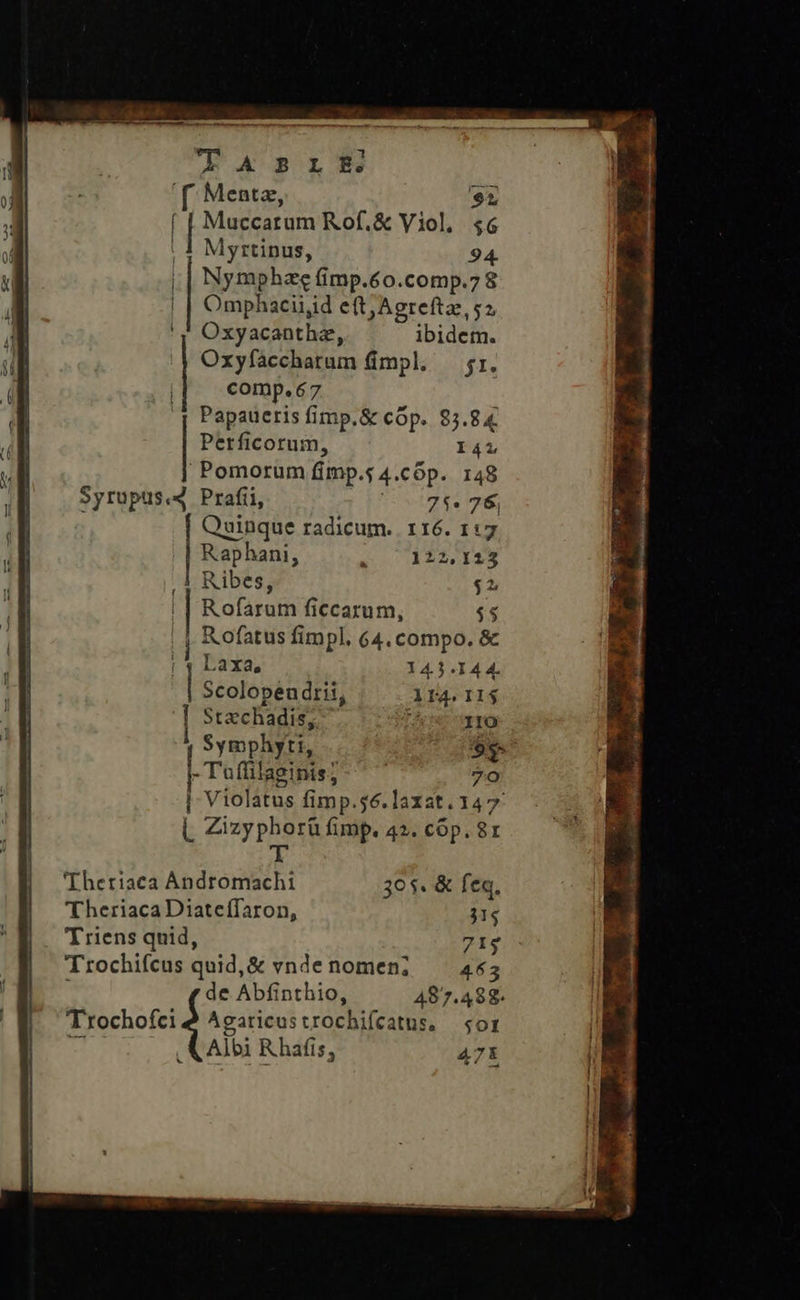 TABLE.
Mentæ, 92
Muccarum Roſ.& Viol. 56
Myrtinus, 94
Nymphæę ſimp.60.comp.78
Omphacii,id eſt,Agreſtæ,52
Oxyacanthæ, ibidem.
Oxyſaccharum ſimpl. 51.
comp.67
Papaueris ſimp.& cõp. 83.84
Perſicorum, 142
Pomorum ſimp.54.cõp. 148
Syrupus. Praſii, 75. 76
Quinque radicum. 116. 117
Raphani, 122,123
Ribes, 52
Roſarum ſiccarum, 55
Roſatus ſimpl. 64.compo. &
Laxa, 143.144
Scolopendrii, 114.115
Stæchadis, 110
Symphyti, 95
Tuſſilaginis, 70
Violatus ſimp.56.laxat.147
Zizyphorũ ſimp. 42. cõp.81
T
Theriaca Andromachi 305. & ſeq.
Theriaca Diateſſaron, 315
Triens quid, 715
Trochiſcus quid,& vnde nomen; 463
de Abſinthio, 487.488.
Trochoſci Agaricus trochiſcatus, 501
Albi Rhaſis, 471